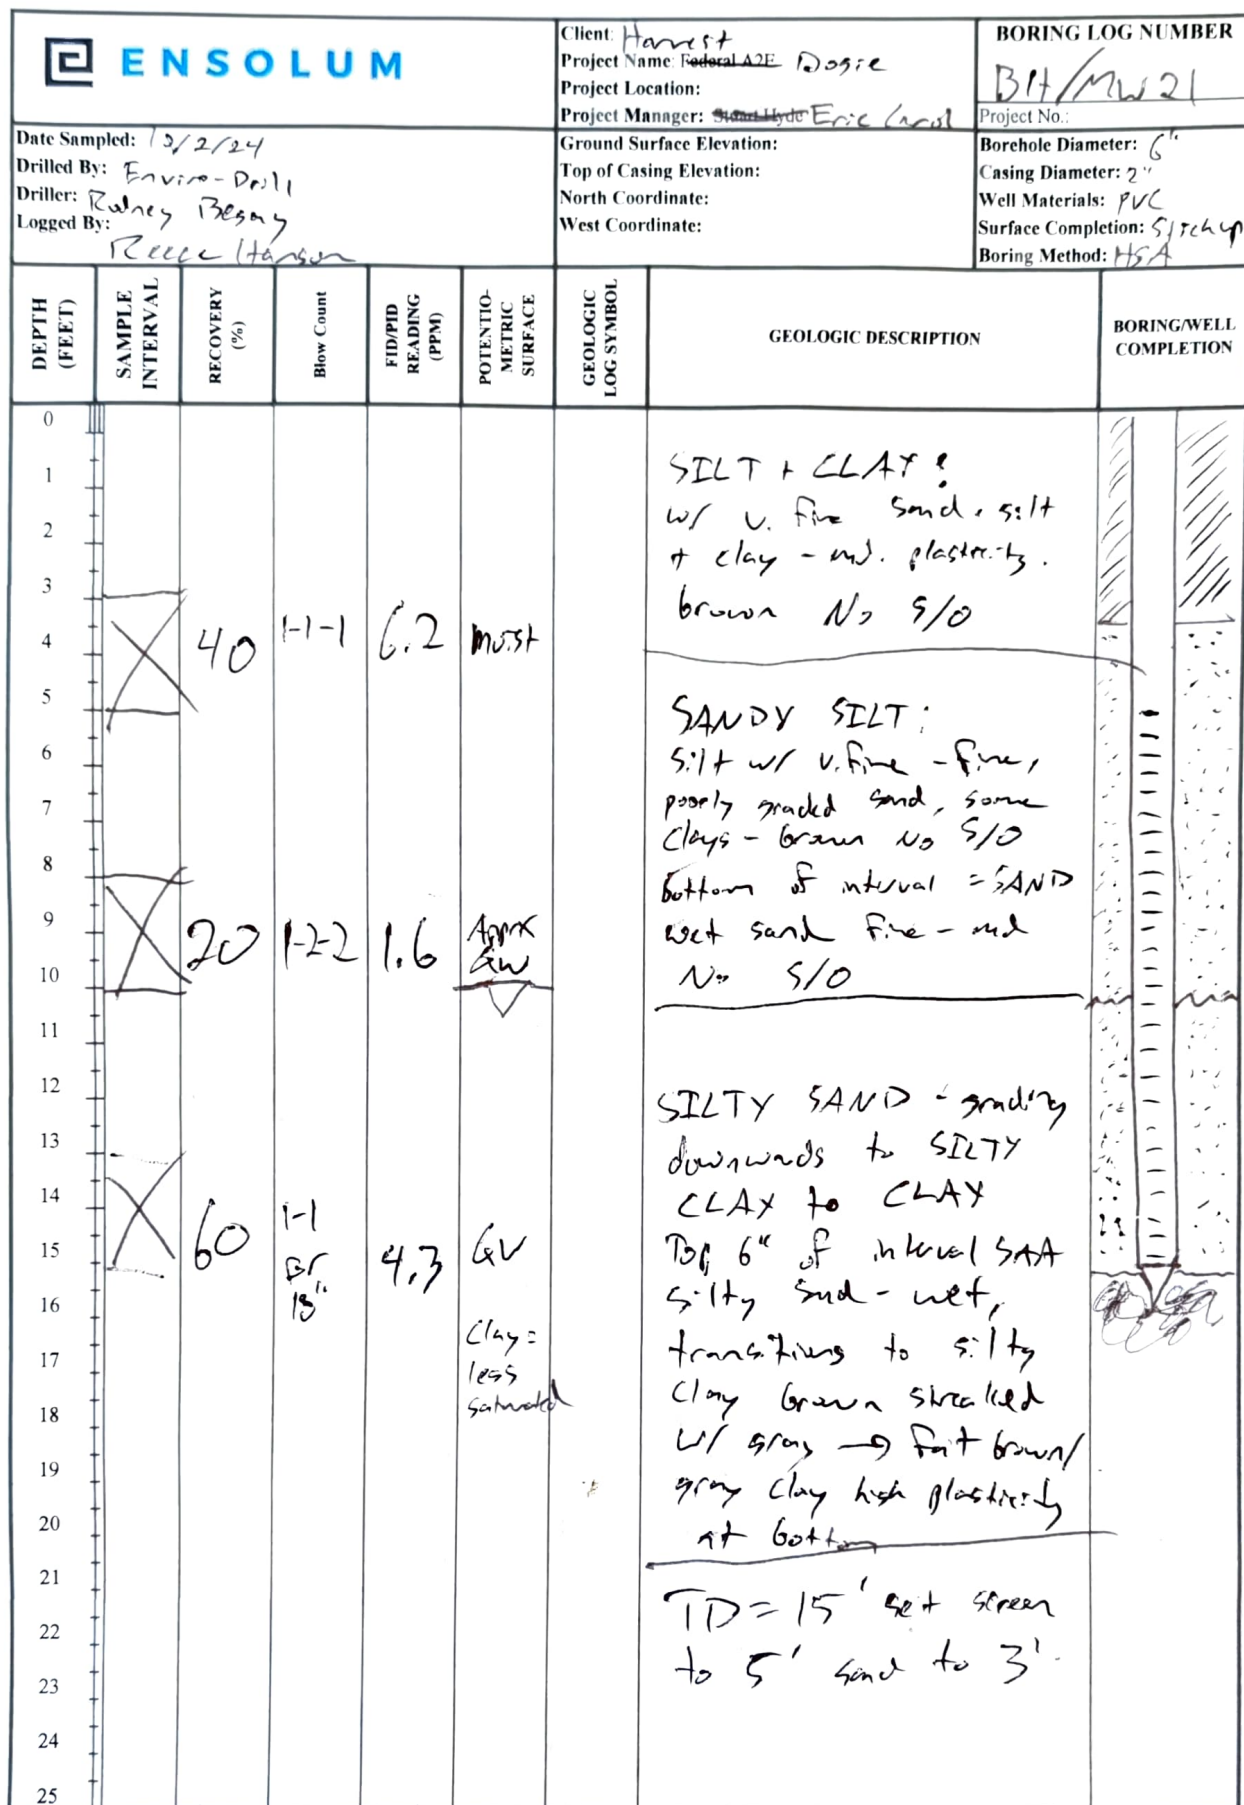 ENSOLUM
Client: Harvest
Project Name: Federal A2E Dogie
Project Location:
Project Manager: Stuart Hyde Eric Carol
BORING LOG NUMBER
BH/MW21
Project No.:
Date Sampled: /2/24
Drilled By: Enviro-Drill
Driller: Rodney Begay
Logged By:
Reece Hanson
Ground Surface Elevation:
Top of Casing Elevation:
North Coordinate:
West Coordinate:
Borehole Diameter: 6"
Casing Diameter: 2"
Well Materials: PVC
Surface Completion: Stickup
Boring Method: HSA
DEPTH (FEET)
SAMPLE INTERVAL
RECOVERY (%)
Blow Count
FID/PID READING (PPM)
POTENTIO-METRIC SURFACE
GEOLOGIC LOG SYMBOL
GEOLOGIC DESCRIPTION
BORING/WELL COMPLETION
0
1
2
3
4
5
6
7
8
9
10
11
12
13
14
15
16
17
18
19
20
21
22
23
24
25
40 1-1-1 6.2 moist
20 1-2-2 1.6 Apprx
GW
60 1-1 4.3 GW
for
18"
Clay =
less
saturated
SILT + CLAY:
w/ v. fine sand. silt
+ clay - md. plasticity.
brown No S/O
SANDY SILT:
silt w/ v.fine - fine,
poorly graded sand, some
clays - brown No S/O
bottom of interval = SAND
wet sand fine - md
No S/O
SILTY SAND - grading
downwards to SILTY
CLAY to CLAY
Top 6" of interval SAA
silty sand - wet,
transitions to silty
clay brown streaked
w/ gray → fat brown/
gray clay high plasticity
at bottom
TD = 15' set screen
to 5' sand to 3'.